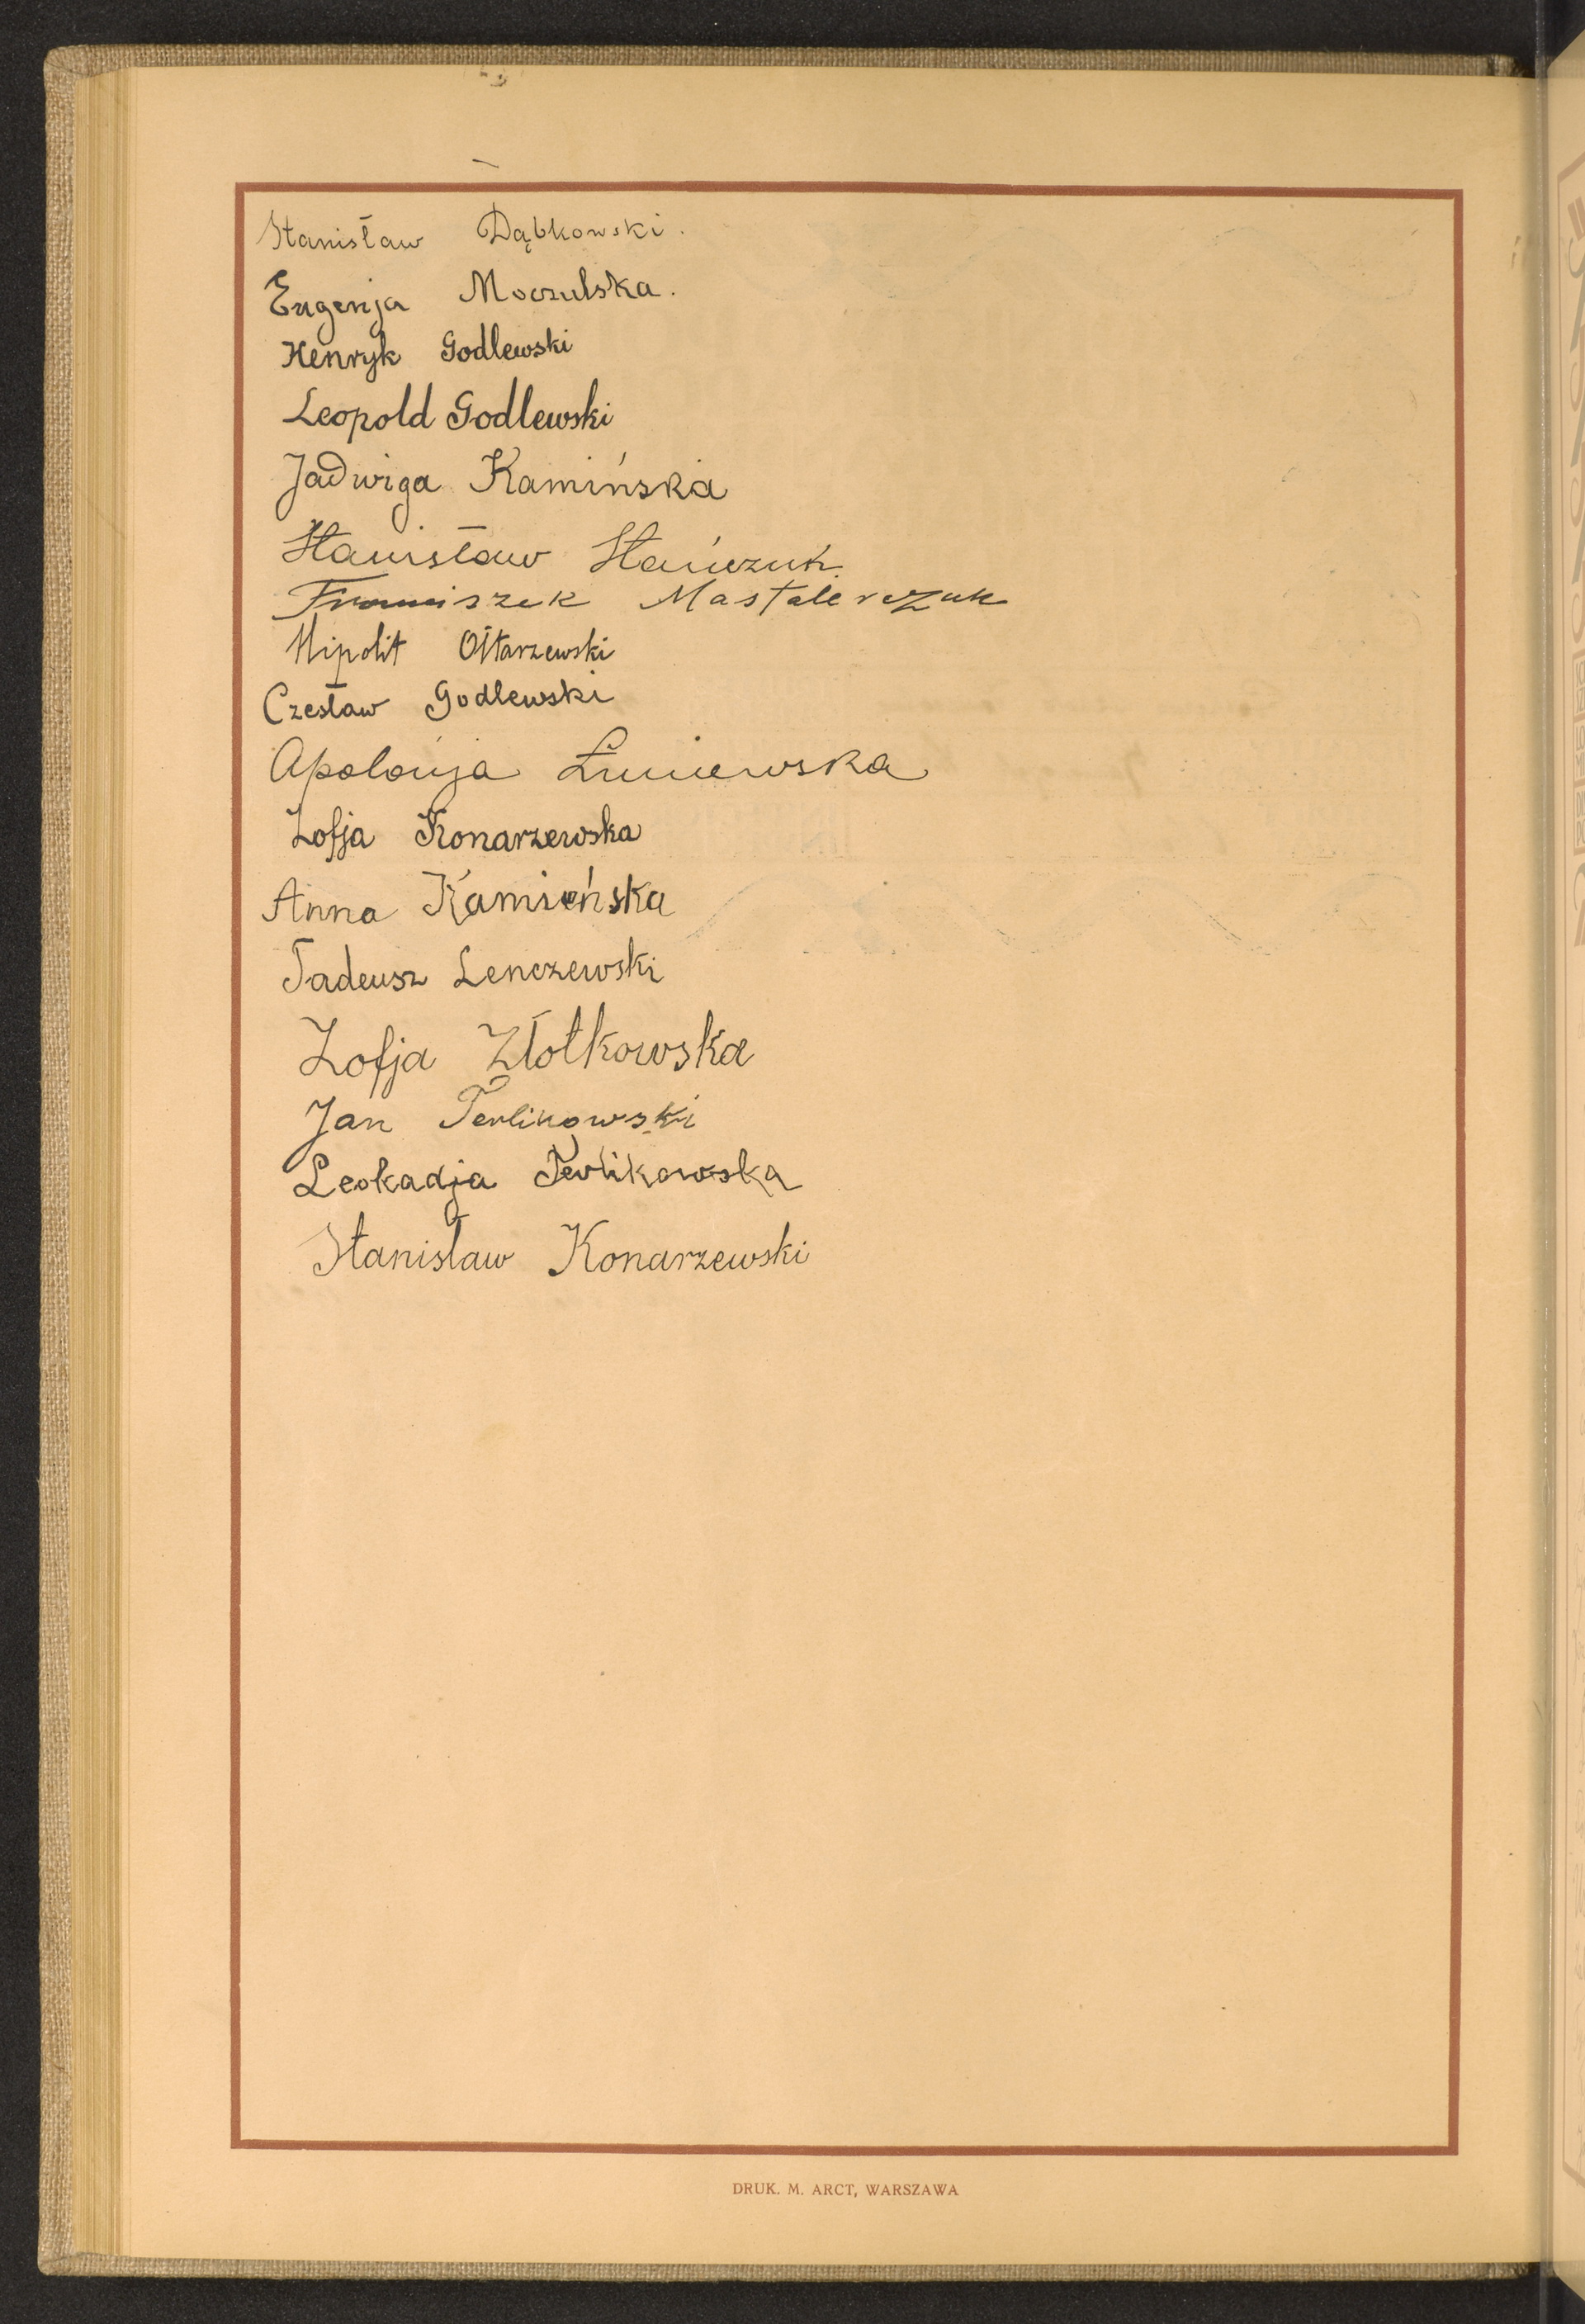 Stanisław Dąbkowski.
Eugenja Moczulska.
Henryk Godlewski
Leopold Godlewski
Jadwiga Kamińska
Stanisław Stańczuk
Franciszek Mastalerczuk
Hipolit Ołtarzewski
Czesław Godlewski
Apolonja Łuniewska
Zofja Konarzewska
Anna Kamieńska
Tadeusz Lenczewski
Zofja Złotkowska
Jan Terlikowski
Leokadja Terlikowska
Stanisław Konarzewski
DRUK. M. ARCT, WARSZAWA